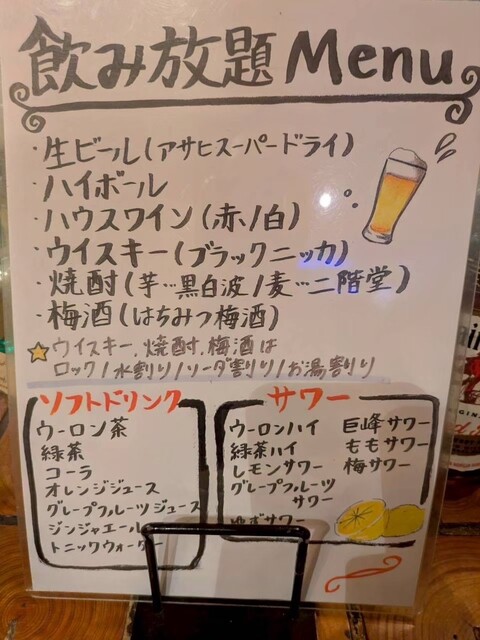 飲み放題 Menu
・生ビール(アサヒスーパードライ)
・ハイボール
・ハウスワイン(赤/白)
・ウイスキー(ブラックニッカ)
・焼酎(芋…黒白波/麦…二階堂)
・梅酒(はちみつ梅酒)
ウイスキー、焼酎、梅酒は
ロック/水割り/ソーダ割り/お湯割り
ソフトドリンク
ウーロン茶
緑茶
コーラ
オレンジジュース
グレープフルーツジュース
ジンジャエール
トニックウォーター
サワー
ウーロンハイ
緑茶ハイ
レモンサワー
グレープフルーツ
サワー
ゆずサワー
巨峰サワー
ももサワー
梅サワー